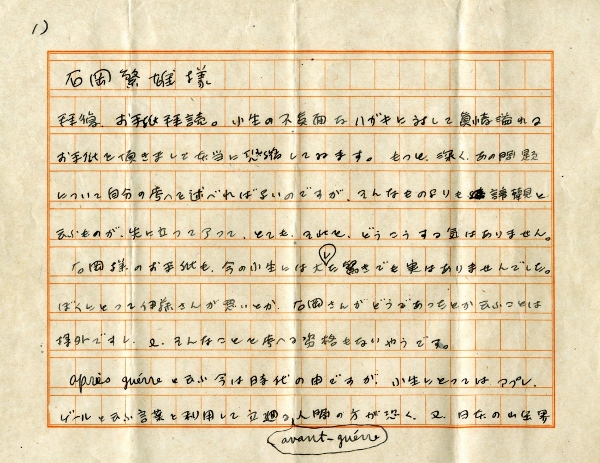 1)
石岡繁雄様
拝復、お手紙拝読。小生の不真面目なハガキに対して真情溢れる
お手紙を頂きまして本当に恐縮してゐます。もっと、深く、あの問題
について自分の考へを述べればよいのですが、そんなものよりも 諦観と
云ふものが、先に立つて了つて、とても、それを、どうこうする気はありません。
石岡様のお手紙も、今の小生には大した驚きでも実はありませんでした。
ぼくにとって伊藤さんが悪いとか、石岡さんがどうであったとか云ふことは
様外ですし、又、そんなことを考へる資格もないやうです。
après guérre と云ふ今は時代の由ですが、小生にとつてはアプレ、
ゲールと云ふ言葉を利用して立廻る人間の方が恐く、又、日本の山岳界
avant-guérre